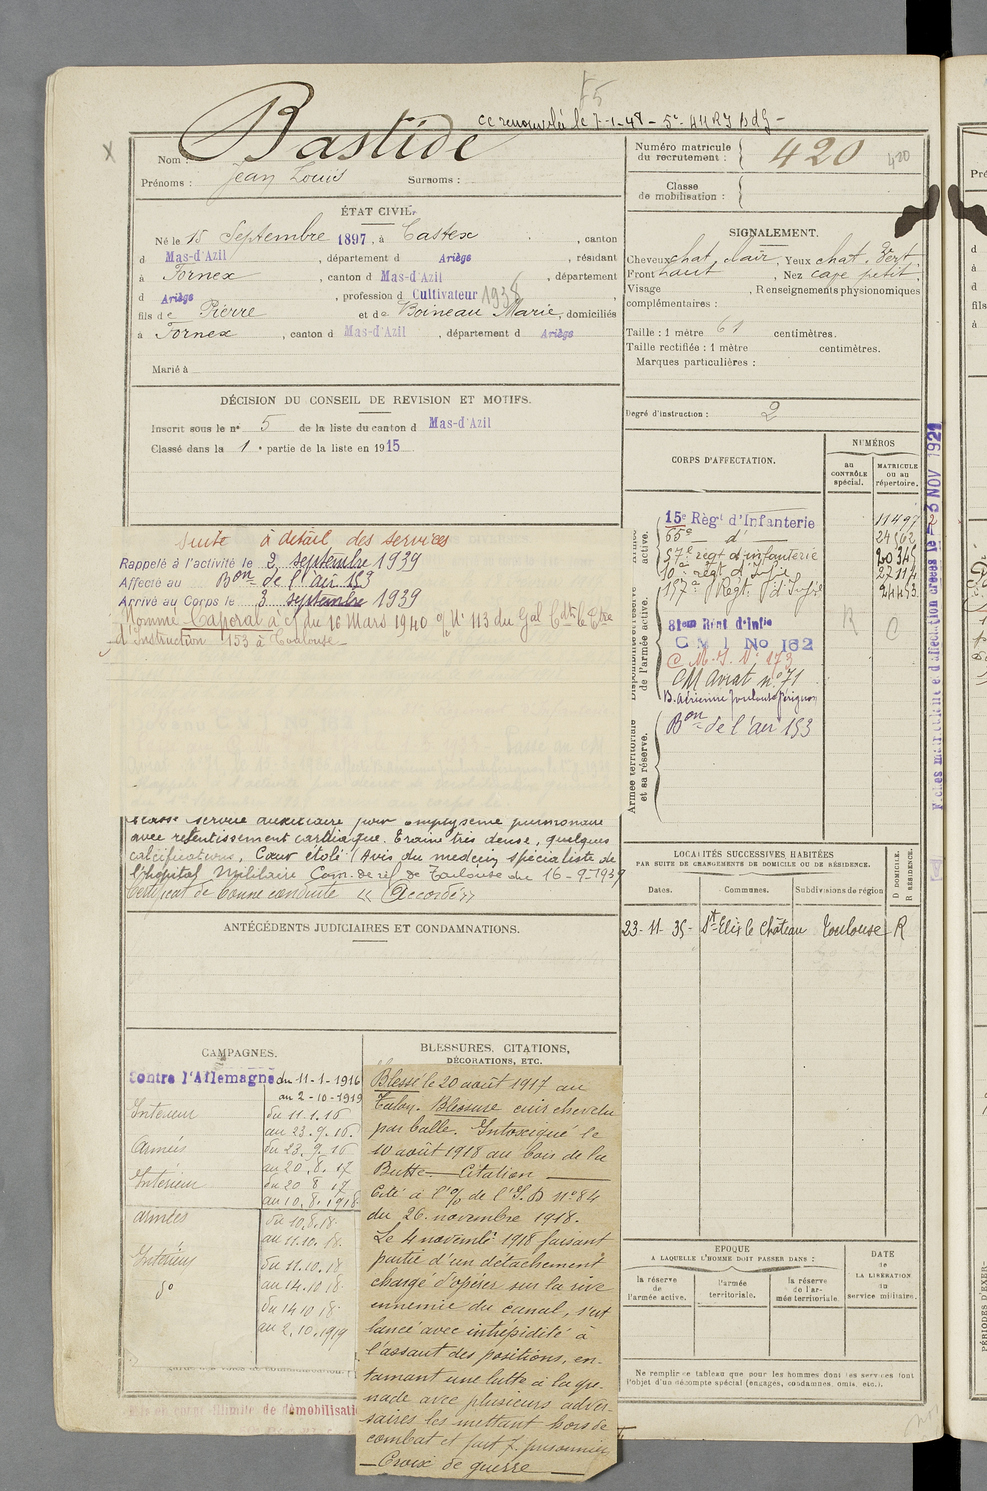 75
cc renouvelée le 7-1-48 - 5e
Nom : Bastide
Prénoms : Jean Louis Surnoms :
Numéro matricule du recrutement : 420
420
Classe de mobilisation :
ÉTAT CIVIL.
Né le 15 Septembre 1897, à Castex , canton
d Mas-d'Azil , département d Ariège , résidant
à Fornex , canton d Mas-d'Azil , département
d Ariège , profession d Cultivateur 1938 ,
fils de Pierre et de Boineau Marie, domiciliés
à Fornex , canton d Mas-d'Azil , département d Ariège
Marié à
SIGNALEMENT.
Cheveux chat. clair, Yeux chat. vert,
Front haut , Nez cave petit,
Visage , Renseignements physionomiques
complémentaires :
Taille : 1 mètre 61 centimètres.
Taille rectifiée : 1 mètre centimètres.
Marques particulières :
Degré d'instruction : 2
DÉCISION DU CONSEIL DE REVISION ET MOTIFS.
Inscrit sous le n° 5 de la liste du canton d Mas-d'Azil
Classé dans la 1e partie de la liste en 1915
Suite à détail des services
Rappelé à l'activité le 2 septembre 1939
Affecté au Bon de l'air 153
Arrivé au Corps le 3 septembre 1939
Nommé Caporal à c/ du 16 Mars 1940 N° 113 du Gal Cdt le Ctre
d'Instruction 153 à Toulouse
classé service auxiliaire pour emphysème pulmonaire
avec retentissement cardiaque. Trame très dense, quelques
calcifications, Cœur étalé (Avis du médecin spécialiste de
l'hôpital Militaire Com. de réf. de Toulouse du 16-9-1939
Certificat de bonne conduite « Accordé »
CORPS D'AFFECTATION.
NUMÉROS
au CONTRÔLE spécial.
MATRICULE ou au répertoire.
Armée active.
15e Régt d'Infanterie 11497
55e d° 24562
57e régt d'infanterie 20345
10e régt d'Infie 27114
157e Régt d'Infie 24453
Disponibilité et réserve de l'armée active.
81em Rént d'Infie
C M I No 162
C.M.I. N° 173
CM Aviat n° 71
B. Aérienne Toulouse Pérignon
R C
Armée territoriale et sa réserve.
Bon de l'air 153
Fiches matricule et d'affectation créées le 3 NOV 1921
LOCALITÉS SUCCESSIVES HABITÉES
PAR SUITE DE CHANGEMENTS DE DOMICILE OU DE RÉSIDENCE.
Dates. Communes. Subdivisions de région D DOMICILE. R RÉSIDENCE.
23-11-35- St-Elix le Château Toulouse R
ANTÉCÉDENTS JUDICIAIRES ET CONDAMNATIONS.
CAMPAGNES.
Contre l'Allemagne du 11-1-1916
au 2-10-1919
Intérieur du 11.1.16
au 23.9.16.
Armées du 23.9.16
au 20.8.17
Intérieur du 20 8 17
au 10.8.1918
Armées du 10.8.18.
au 11.10.18.
Intérieur du 11.10.18
d° au 14.10 18
du 14 10 18.
au 2.10.1919
BLESSURES, CITATIONS,
DÉCORATIONS, ETC.
Blessé le 20 août 1917 au
Talou. Blessure cuir chevelu
par balle. Intoxiqué le
10 août 1918 au bois de la
Butte. Citation
Cité à l'o/ de l'I.D n° 84
du 26. novembre 1918.
Le 4 novemb. 1918 faisant
partie d'un détachement
chargé d'opérer sur la rive
ennemie du canal, s'est
lancé avec intrépidité à
l'assaut des positions, en-
tamant une lutte à la gre-
nade avec plusieurs adver-
saires les mettant hors de
combat et fait 7 prisonniers
Croix de guerre
ÉPOQUE
A LAQUELLE L'HOMME DOIT PASSER DANS :
la réserve de l'armée active.
l'armée territoriale.
la réserve de l'armée territoriale.
DATE de LA LIBÉRATION du service militaire.
Ne remplir ce tableau que pour les hommes dont les services font
l'objet d'un décompte spécial (engagés, condamnés, omis, etc.).
Mis en congé illimité de démobilisati